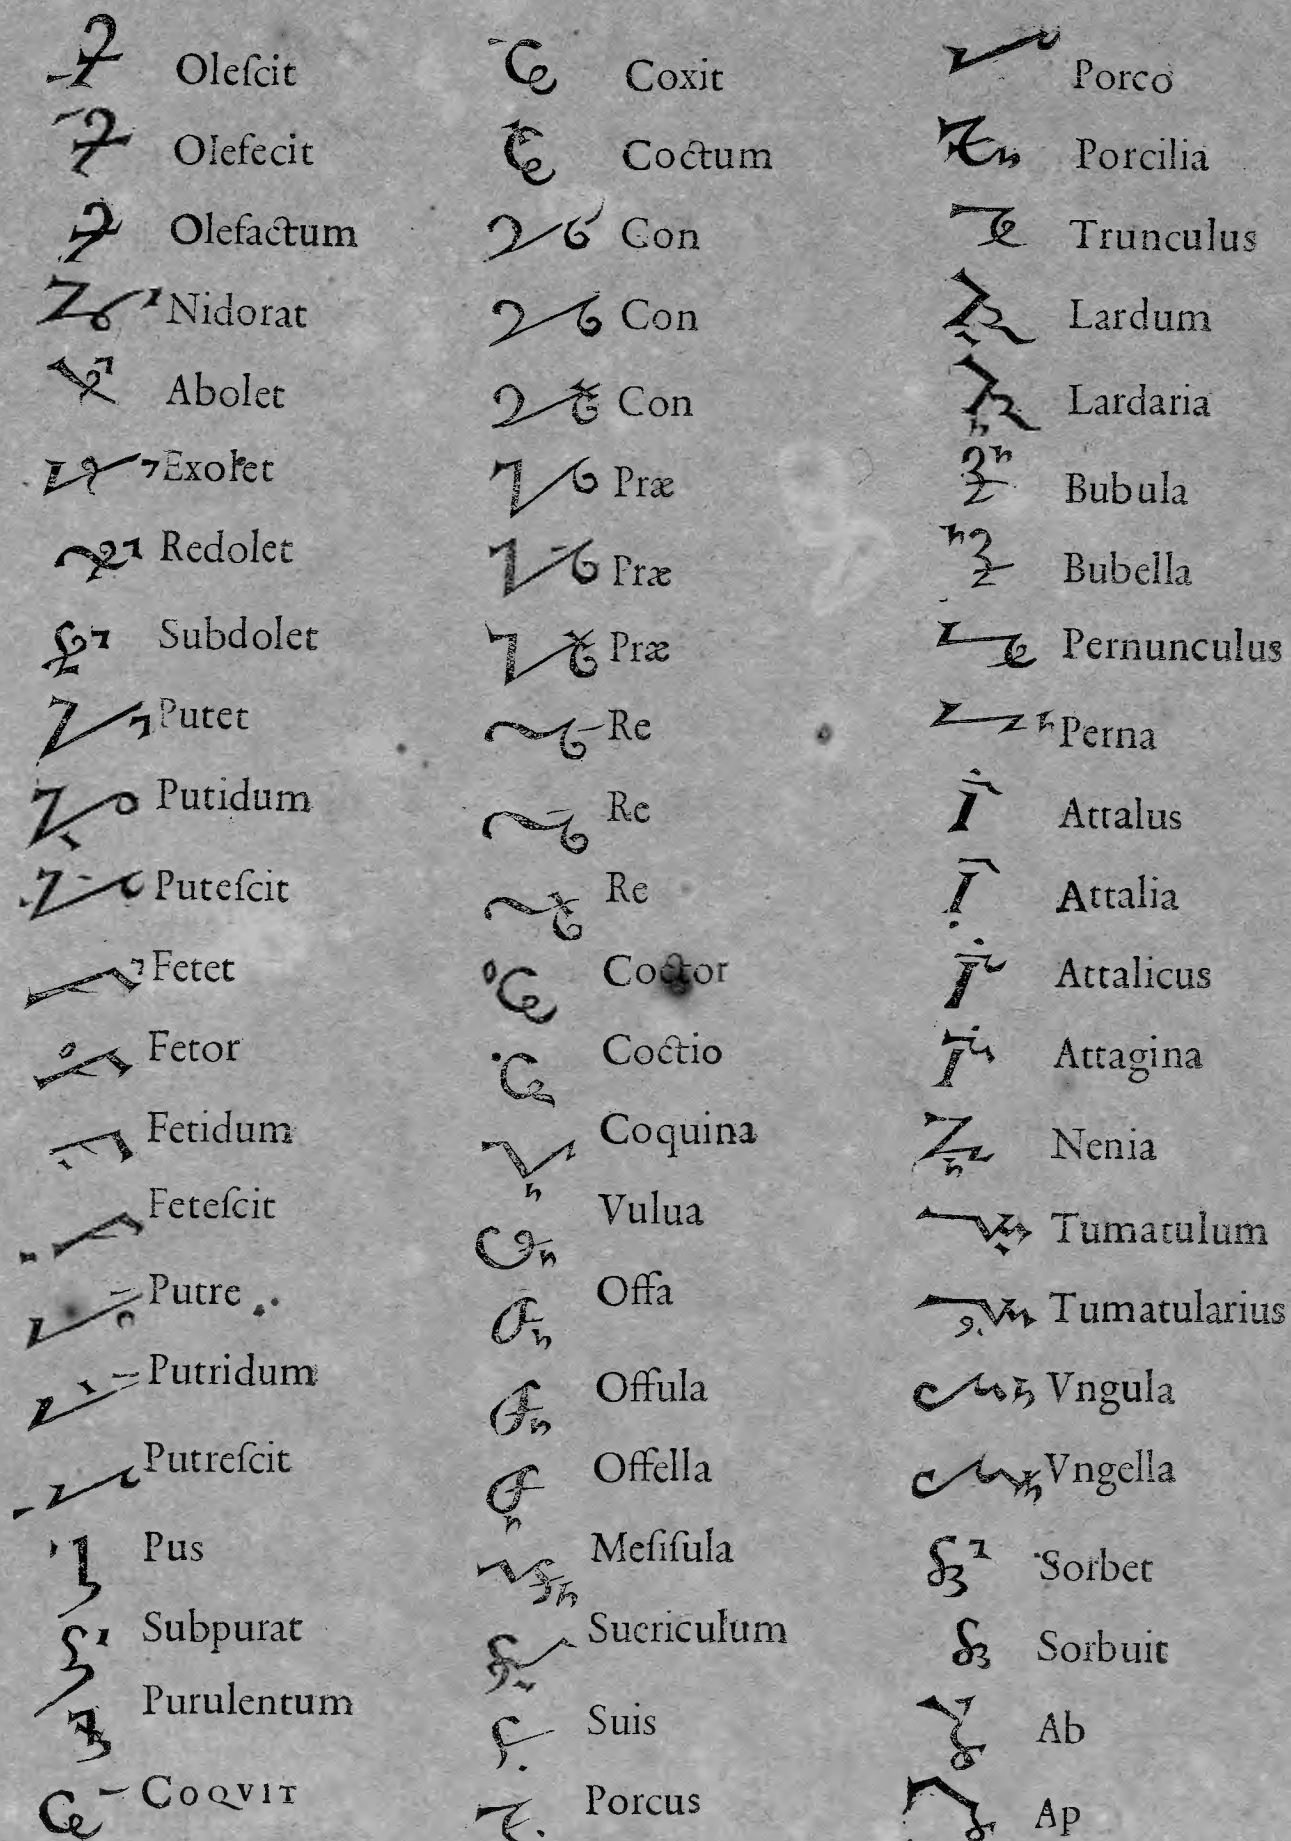 Oleſcit
Olefecit
Olefactum
Nidorat
Abolet
Exolet
Redolet
Subdolet
Putet
Putidum
Puteſcit
Fetet
Fetor
Fetidum
Feteſcit
Putre
Putridum
Putreſcit
Pus
Subpurat
Purulentum
COQVIT
Coxit
Coctum
Con
Con
Con
Præ
Præ
Præ
Re
Re
Re
Coctor
Coctio
Coquina
Vulua
Offa
Offula
Offella
Meſiſula
Sucriculum
Suis
Porcus
Porco
Porcilia
Trunculus
Lardum
Lardaria
Bubula
Bubella
Pernunculus
Perna
Attalus
Attalia
Attalicus
Attagina
Nenia
Tumatulum
Tumatularius
Vngula
Vngella
Sorbet
Sorbuit
Ab
Ap